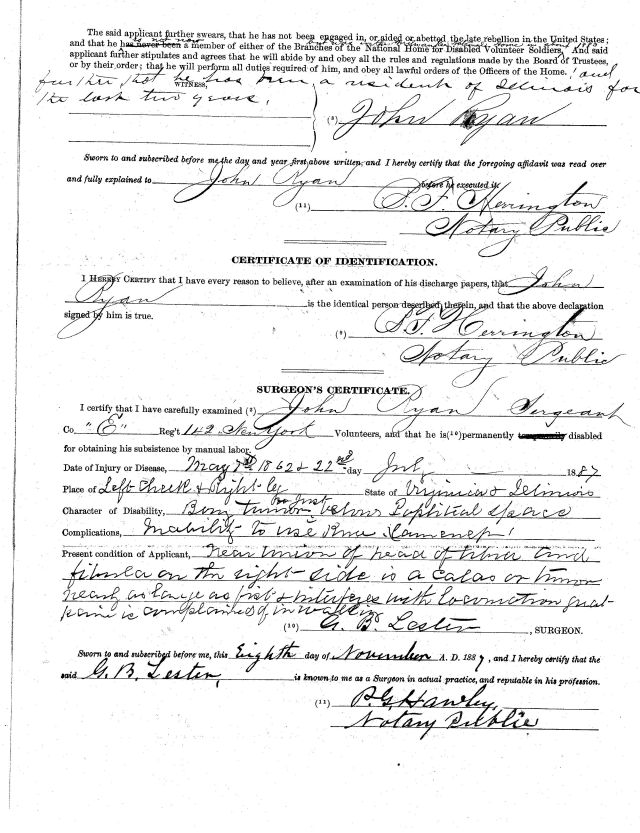 The said applicant further swears, that he has not been engaged in, or aided or abetted the late rebellion in the United States;
is not now
and that he has never been a member of either of the Branches of the National Home for Disabled Volunteer Soldiers. And said
applicant further stipulates and agrees that he will abide by and obey all the rules and regulations made by the Board of Trustees,
or by their order; that he will perform all duties required of him, and obey all lawful orders of the Officers of the Home. and
further that he has been a resident of Illinois for
WITNESS,
the last two years.
(8) John Ryan
Sworn to and subscribed before me the day and year first above written; and I hereby certify that the foregoing affidavit was read over
and fully explained to John Ryan before he executed it.
(11) S. F. Herrington
Notary Public
CERTIFICATE OF IDENTIFICATION.
I HEREBY CERTIFY that I have every reason to believe, after an examination of his discharge papers, that John
Ryan is the identical person described therein, and that the above declaration
signed by him is true.
(9) S. F. Herrington
Notary Public
SURGEON'S CERTIFICATE.
I certify that I have carefully examined (2) John Ryan Sergeant
Co "E" Reg't 142 New York Volunteers, and that he is (10) permanently temporarily disabled
for obtaining his subsistence by manual labor.
Date of Injury or Disease, May 7th 1862 & 22nd day July 1887
Place of Left Cheek & Right leg State of Virginia & Illinois
Character of Disability, Bony tumor just below Popliteal space
Complications, Inability to use Knee Lameness
Present condition of Applicant, Near Union of head of tibia and
fibula on the right side is a calas or tumor
nearly as large as fist & interferes with locomotion great
pain is complained of in walking
(10) G. B. Lester, SURGEON.
Sworn to and subscribed before me, this Eighth day of November A. D. 1887, and I hereby certify that the
said G. B. Lester, is known to me as a Surgeon in actual practice, and reputable in his profession.
(11) P. G. Hawley,
Notary Public